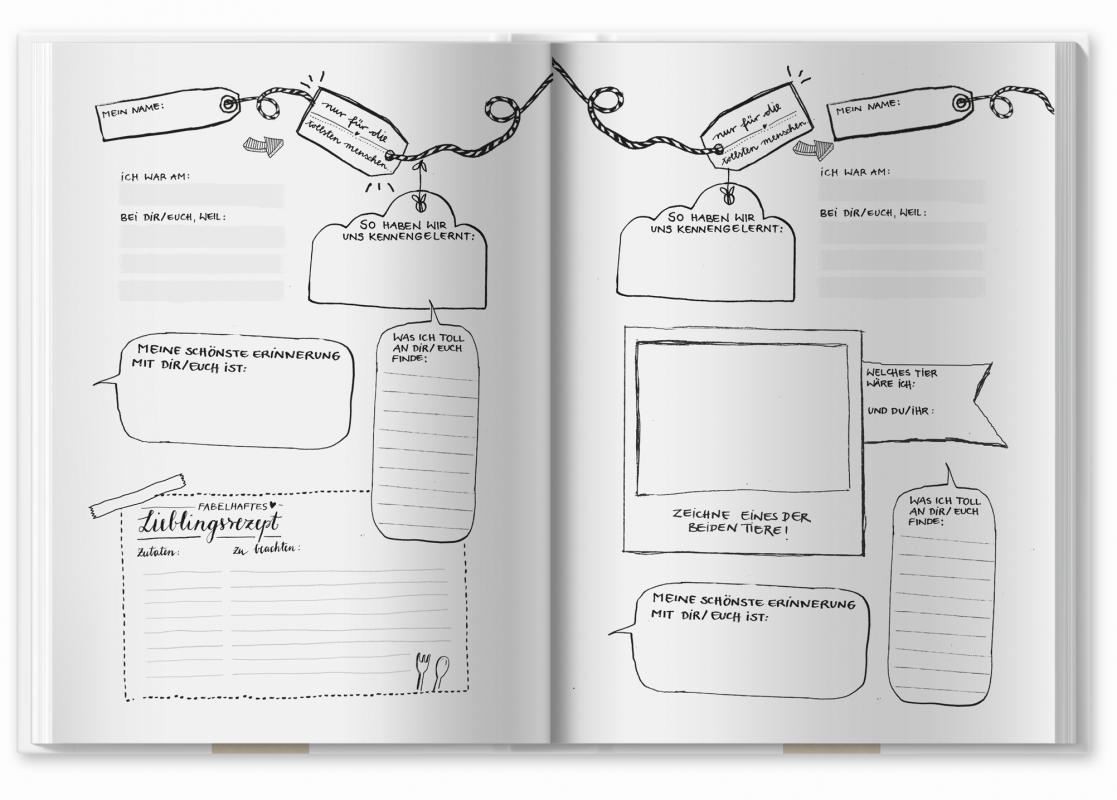 MEIN NAME:
nur für die
tollsten menschen
ICH WAR AM:
BEI DIR/EUCH, WEIL:
SO HABEN WIR
UNS KENNENGELERNT:
WAS ICH TOLL
AN DIR/EUCH
FINDE:
MEINE SCHÖNSTE ERINNERUNG
MIT DIR/EUCH IST:
FABELHAFTES
Lieblingsrezept
Zutaten:
zu beachten:
nur für die
tollsten menschen
MEIN NAME:
ICH WAR AM:
BEI DIR/EUCH, WEIL:
SO HABEN WIR
UNS KENNENGELERNT:
WELCHES TIER
WÄRE ICH:
UND DU/IHR:
ZEICHNE EINES DER
BEIDEN TIERE!
WAS ICH TOLL
AN DIR/EUCH
FINDE:
MEINE SCHÖNSTE ERINNERUNG
MIT DIR/EUCH IST: